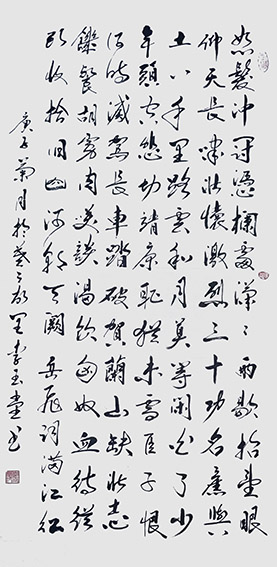 怒髮冲冠憑欄處潇〻雨歇抬望眼
仰天長嘯壯懷激烈三十功名塵與
土八千里路雲和月莫等闲白了少
年頭空悲切靖康耻猶未雪臣子恨
何時滅駕長車踏破賀蘭山缺壯志
饑餐胡虜肉笑談渴飲匈奴血待從
头收拾旧山河朝天闕 岳飛詞满江红
庚子菊月於 李玉堂书